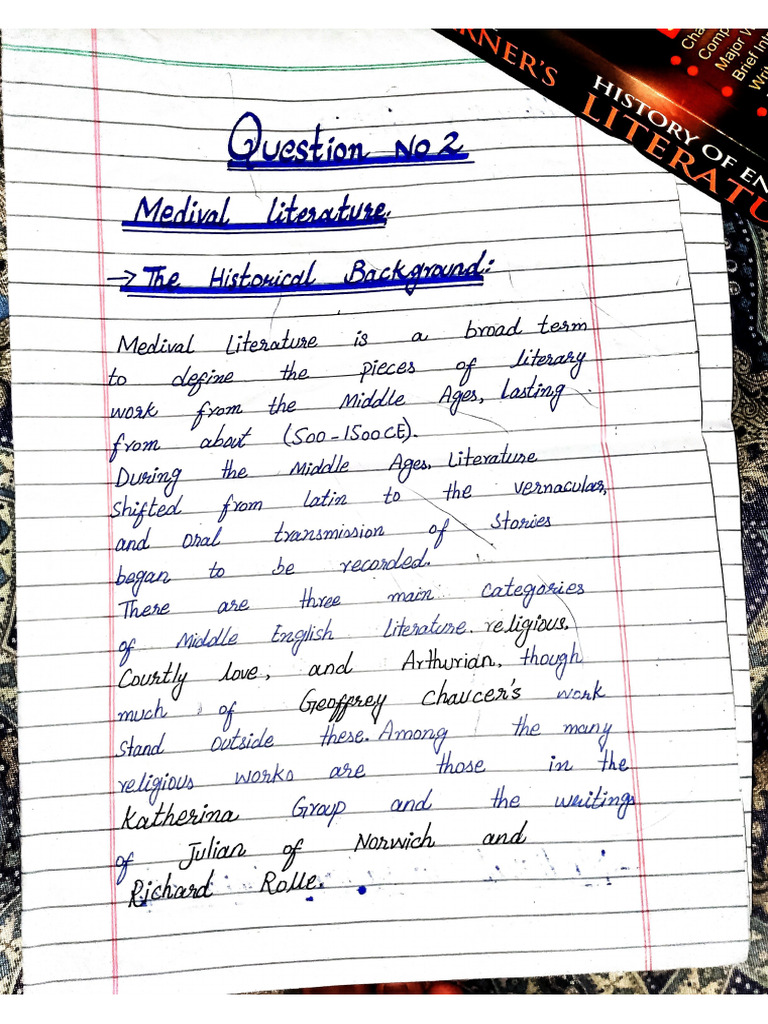 KRNER'S
HISTORY OF EN
LITERATU
Cha
Comp
Major W
Brief Int
Writ
Question No 2
Medival literature.
→ The Historical Background:
Medival Literature is a broad term
to define the pieces of literary
work from the Middle Ages, lasting
from about (500-1500CE).
During the Middle Ages, Literature
shifted from latin to the vernacular,
and oral transmission of stories
began to be recorded.
There are three main categories
of Middle English literature. religious,
Courtly love, and Arthurian, though
much of Geoffrey Chaucer's work
stand outside these. Among the many
religious works are those in the
Katherina Group and the writings
of Julian of Norwich and
Richard Rolle.